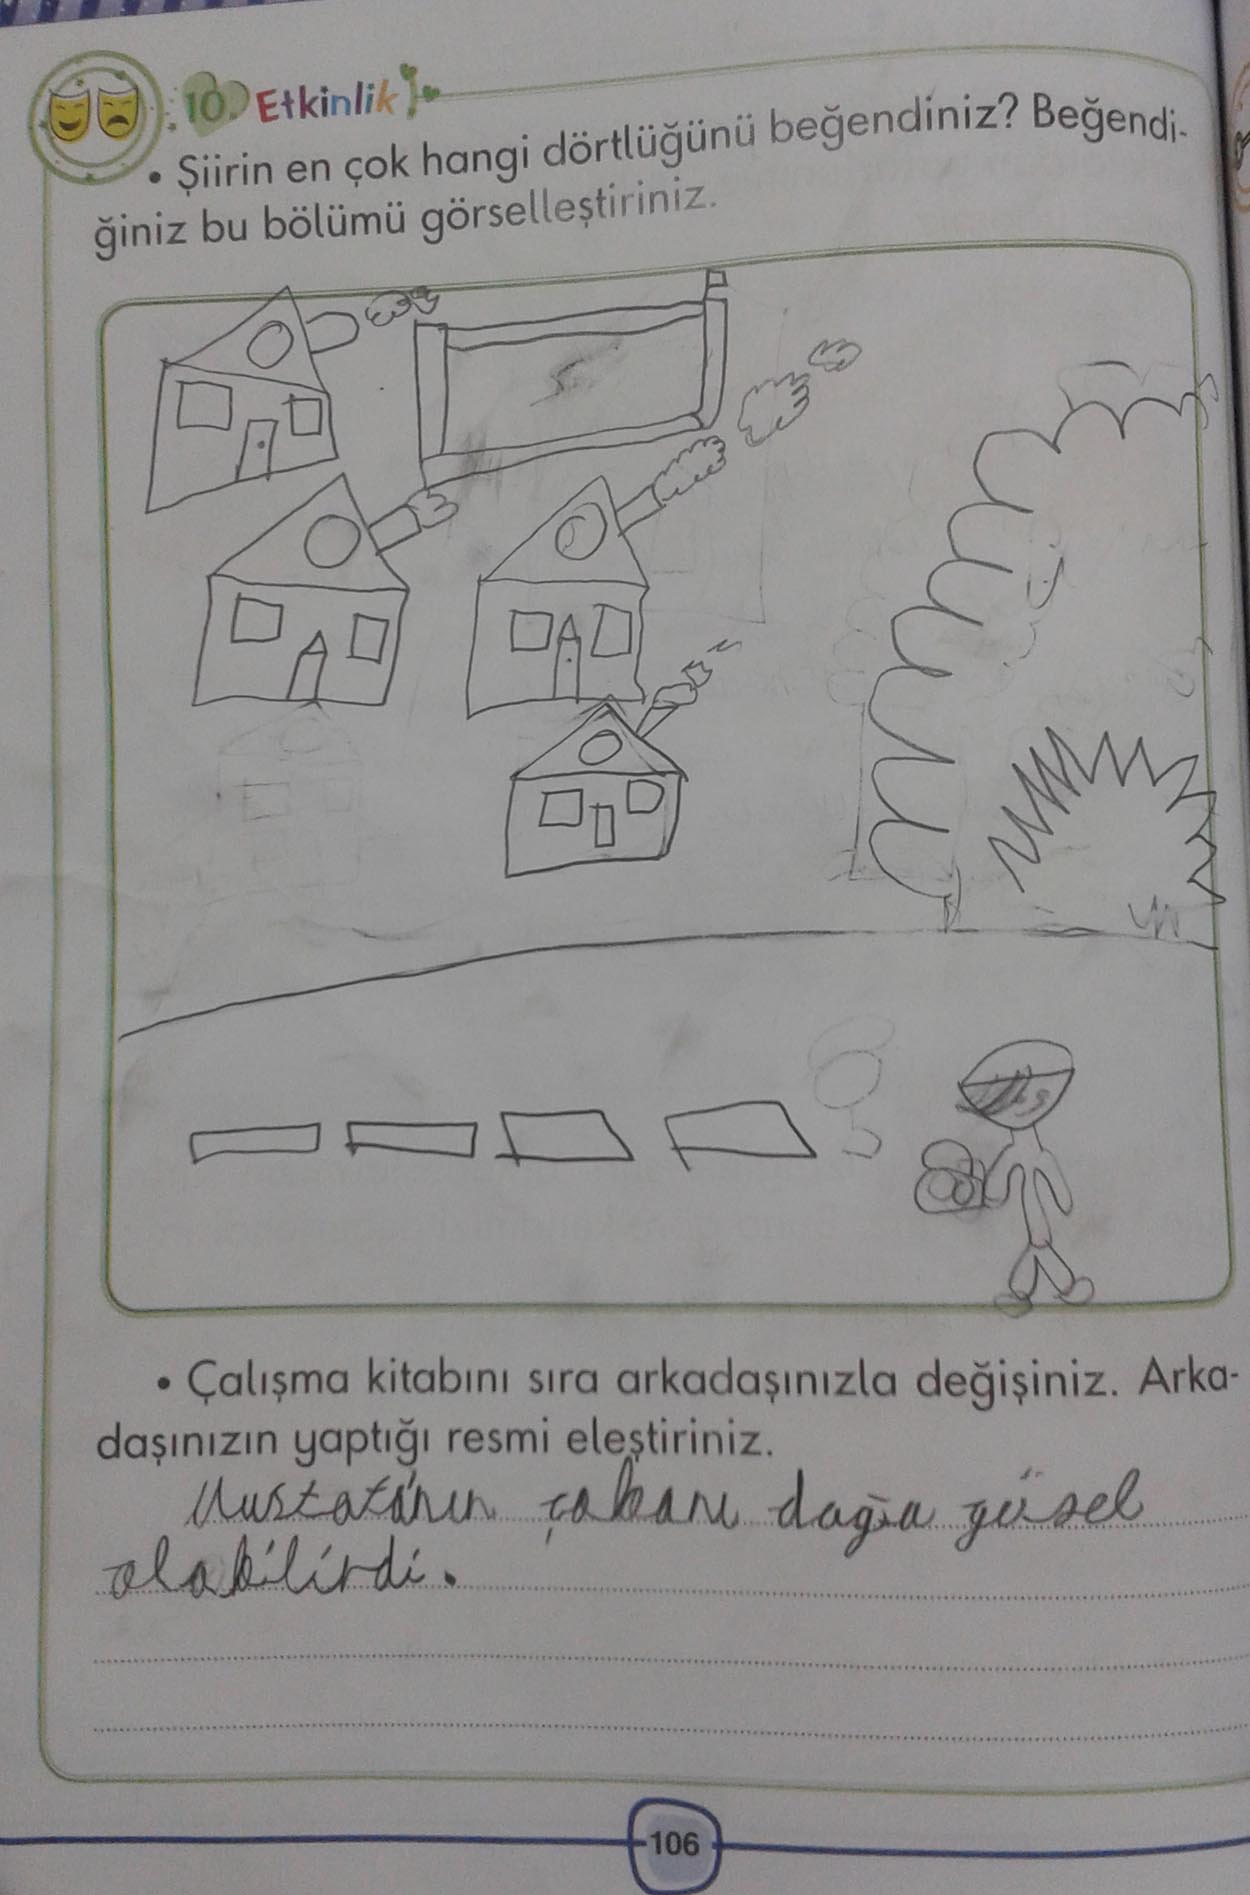 10. Etkinlik
• Şiirin en çok hangi dörtlüğünü beğendiniz? Beğendi-
ğiniz bu bölümü görselleştiriniz.
• Çalışma kitabını sıra arkadaşınızla değişiniz. Arka-
daşınızın yaptığı resmi eleştiriniz.
çabanı güsel
olabilirdi.
106